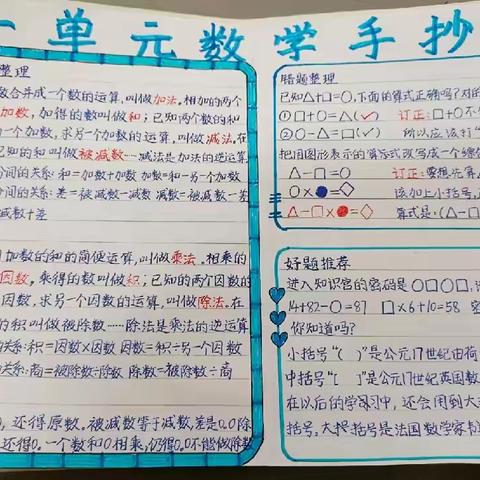 一单元数学手抄
整理
数合并成一个数的运算,叫做加法。相加的两个
加数,加得的数叫做和;已知两个数的和
一个加数,求另一个加数的运算,叫做减法。在
已知的和叫做被减数……减法是加法的逆运算
分间的关系:和=加数+加数 加数=和-另一个加数
分间的关系:差=被减数-减数 减数=被减数-差
减数+差
加数的和的简便运算,叫做乘法。相乘的
因数,乘得的数叫做积;已知的两个因数的
因数,求另一个因数的运算,叫做除法。在
的积叫做被除数……除法是乘法的逆运算
的关系:积=因数×因数 因数=积÷另一个因数
关系:商=被除数÷除数 除数=被除数÷商
0,还得原数,被减数等于减数,差是0.0除
还得0。一个数和0相乘,仍得0。0不能做除数
错题整理
已知△+□=○,下面的算式正确吗?对的
①□+○=△(✓) 订正:□+○不
②○-△=□(✓) 所以应该打“
把用图形表示的算式改写成一个综
△-□=● 订正:要想先算
○×●=◇ 该加上小括号,
△-□×●=◇ 算式是:(△-□
好题推荐
进入知识宫的密码是○□○□,
14+82-○=87 □×6+10=58 密
你知道吗?
小括号“( )”是公元17世纪由荷
中括号“[ ]”是公元17世纪英国数
在以后的学习中,还会用到大
括号,大括号是法国数学家韦达